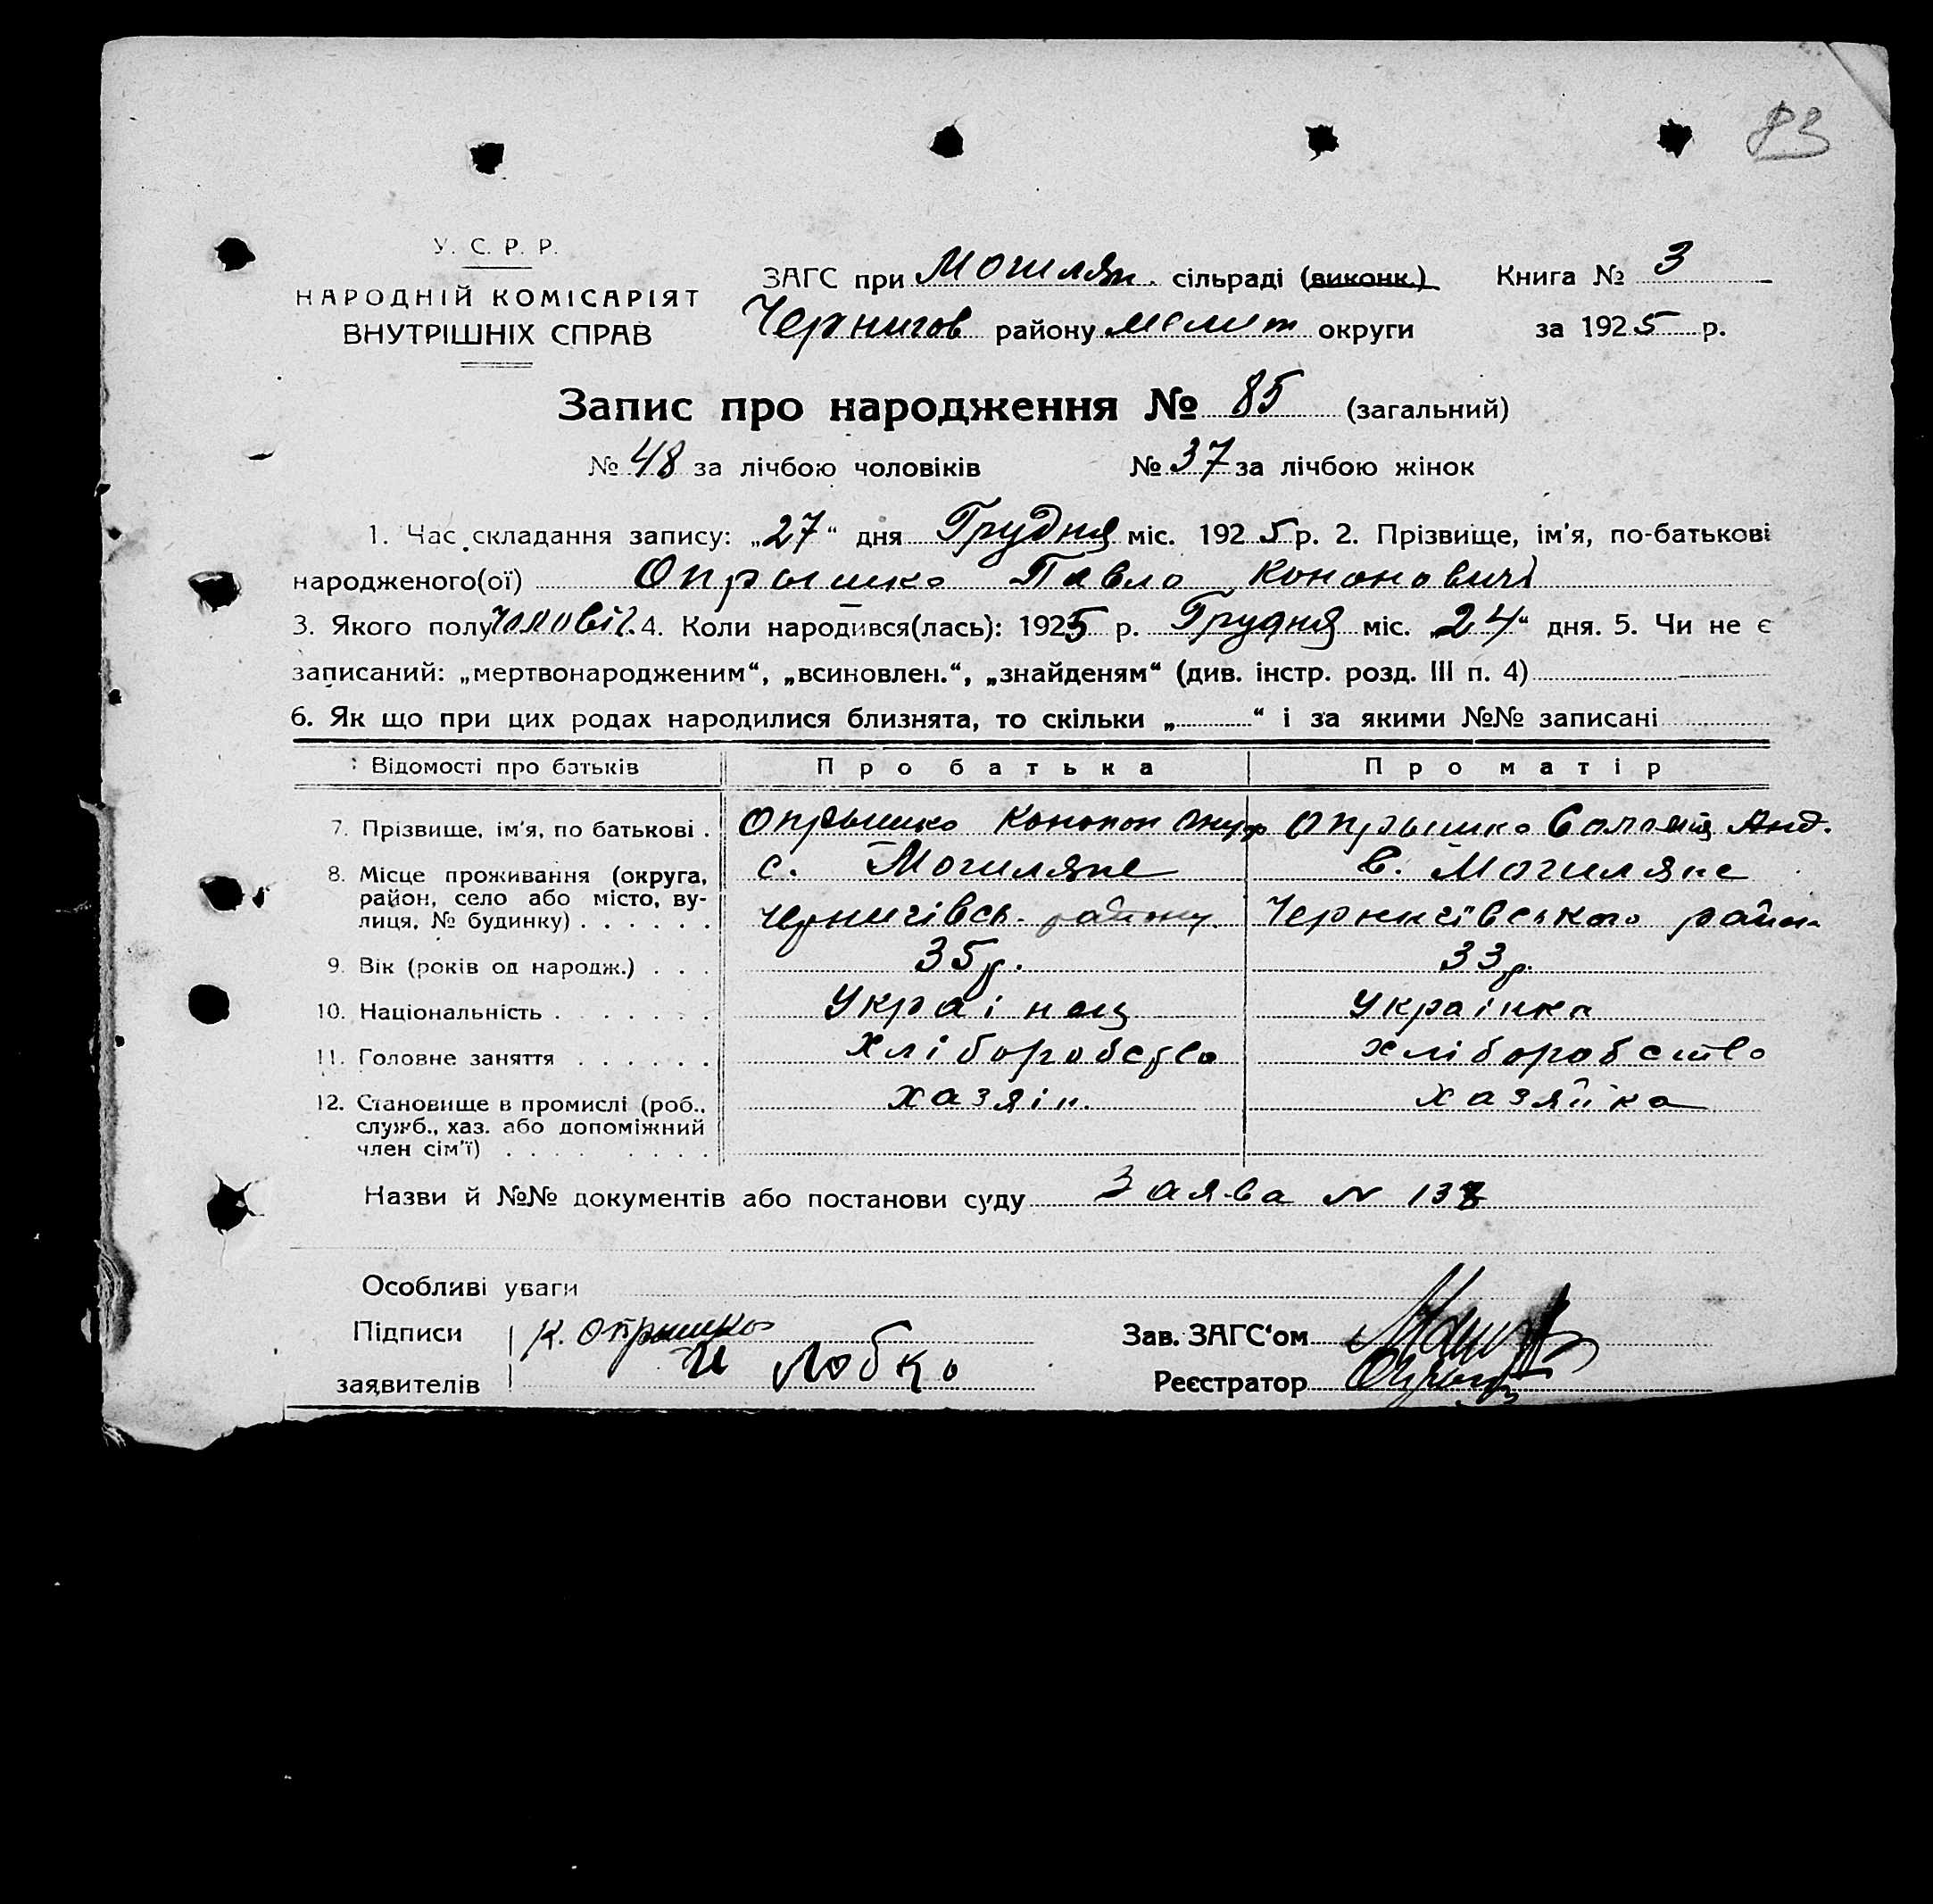 83
У. С. Р. Р.
НАРОДНІЙ КОМІСАРІЯТ
ВНУТРІШНІХ СПРАВ
ЗАГС при Могилян. сільраді (виконк.) Книга № 3
Чернигов району мелит округи за 1925 р.
Запис про народження № 85 (загальний)
№ 48 за лічбою чоловіків № 37 за лічбою жінок
1. Час складання запису: „27“ дня Грудня міс. 1925 р. 2. Прізвище, ім'я, по-батькові
народженого(ої) Опрышко Павло Кононович
3. Якого полу чоловіч. 4. Коли народився(лась): 1925 р. Грудня міс. „24“ дня. 5. Чи не є
записаний: „мертвонародженим“, „всиновлен.“, „знайденям“ (див. інстр. розд. III п. 4)
6. Як що при цих родах народилися близнята, то скільки „ “ і за якими №№ записані
Відомості про батьків Про батька Про матір
7. Прізвище, ім'я, по батькові . Опрышко Кононон Опрышко Соломія Анд.
8. Місце проживання (округа, район, село або місто, вулиця, № будинку) . . . . . . с. Могиляне в. Могиляне
Чернигівсь. району Чернигівського район
9. Вік (років од народж.) . . . 35 р. 33 р.
10. Національність . . . . . . . Украінец Украінка
11. Головне заняття . . . . . . Хліборобство хліборобство
12. Становище в промислі (роб., служб., хаз. або допоміжний член сім'ї) . . . . . . . . . хазяін. хазяйка
Назви й №№ документів або постанови суду Заява № 138
Особливі уваги
Підписи К. Опрышко Зав. ЗАГС'ом
заявителів И Лобко Реєстратор